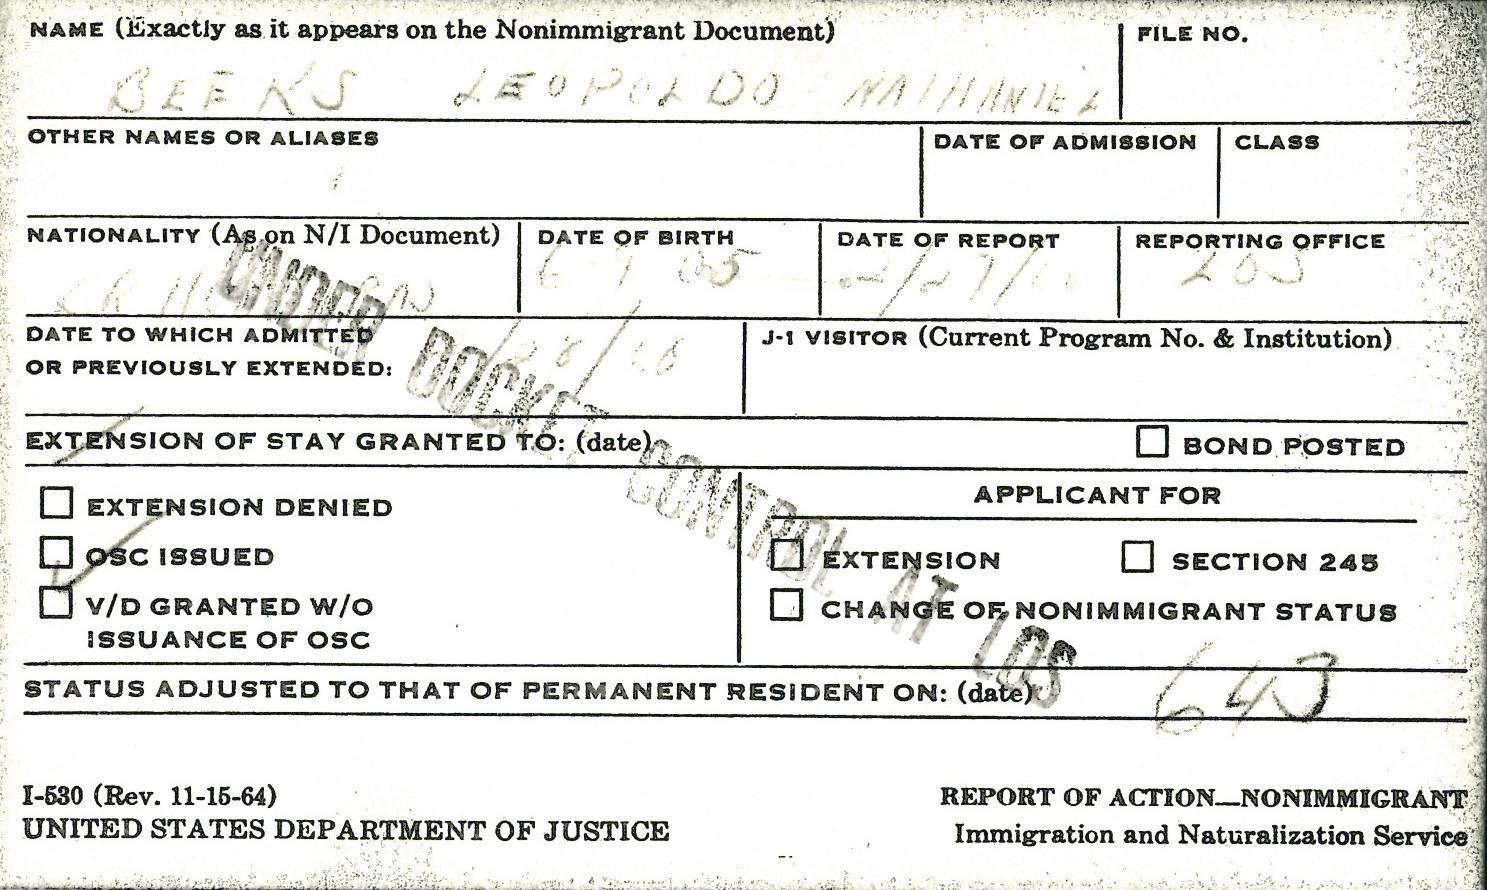 NAME (Exactly as it appears on the Nonimmigrant Document)
FILE NO.
BEEKS LEOPOLDO NATHANIEL
OTHER NAMES OR ALIASES
DATE OF ADMISSION
CLASS
NATIONALITY (As on N/I Document)
DATE OF BIRTH
DATE OF REPORT
REPORTING OFFICE
LOS
DATE TO WHICH ADMITTED
OR PREVIOUSLY EXTENDED:
J-1 VISITOR (Current Program No. & Institution)
UNDER DOCKET CONTROL AT LOS
EXTENSION OF STAY GRANTED TO: (date)
BOND POSTED
EXTENSION DENIED
OSC ISSUED
V/D GRANTED W/O
ISSUANCE OF OSC
APPLICANT FOR
EXTENSION
SECTION 245
CHANGE OF NONIMMIGRANT STATUS
STATUS ADJUSTED TO THAT OF PERMANENT RESIDENT ON: (date)
643
I-530 (Rev. 11-15-64)
UNITED STATES DEPARTMENT OF JUSTICE
REPORT OF ACTION—NONIMMIGRANT
Immigration and Naturalization Service